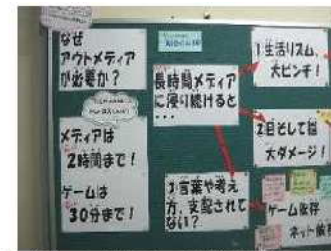 なぜ
アウトメディア
が必要か？
メディアは
2時間まで！
ゲームは
30分まで！
長時間メディア
に浸り続けると
・・・
1生活リズム、
大ピンチ！
2目そして脳
大ダメージ！
3言葉や考え
方、支配されて
ない？
ゲーム依存
ネット依存